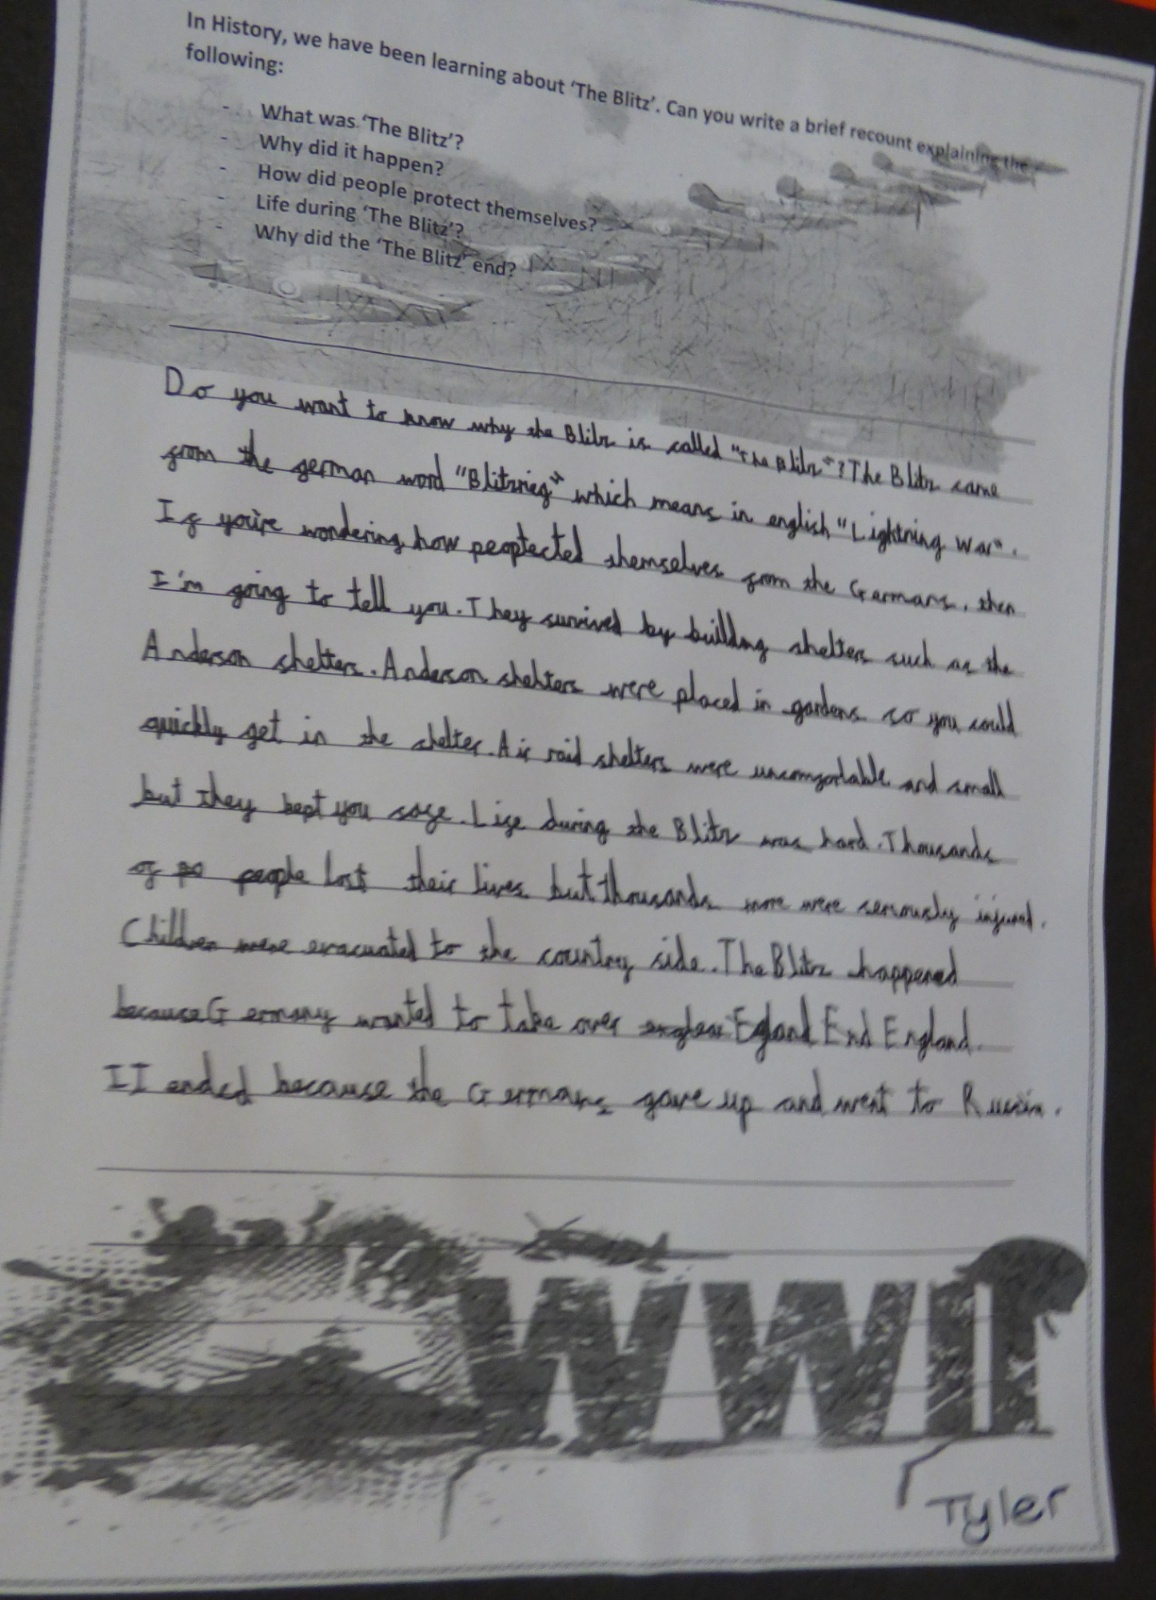 In History, we have been learning about 'The Blitz'. Can you write a brief recount explaining the
following:
- What was 'The Blitz'?
- Why did it happen?
- How did people protect themselves?
- Life during 'The Blitz'?
- Why did the 'The Blitz' end?
Do you want to know why the Blitz is called "The Blitz"? The Blitz came
from the german word "Blitzrieg" which means in english "Lightning War".
If you're wondering how peoptected themselves from the Germans, then
I'm going to tell you. They survived by building shelters such as the
Anderson shelters. Anderson shelters were placed in gardens so you could
quickly get in the shelter. Air raid shelters were uncomfortable and small
but they kept you safe. Life during the Blitz was hard. Thousands
of po people lost their lives but thousands more were seriously injured.
Children were evacuated to the country side. The Blitz happened
because Germany wanted to take over Egland End England.
II ended because the Germans gave up and went to Russia.
WWII
Tyler